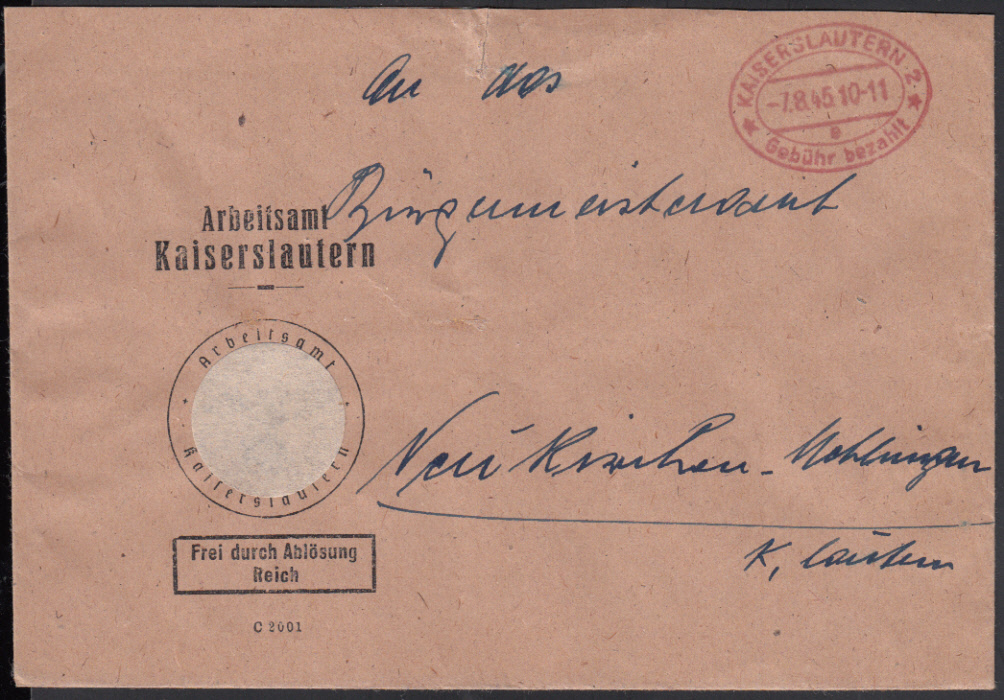 An das
KAISERSLAUTERN 2
-7.8.45.10-11
e
Gebühr bezahlt
Bürgermeisteramt
Arbeitsamt
Kaiserslautern
Arbeitsamt
Kaiserslautern
Neukirchen - Mehlingen
K, lautern
Frei durch Ablösung
Reich
C 2001